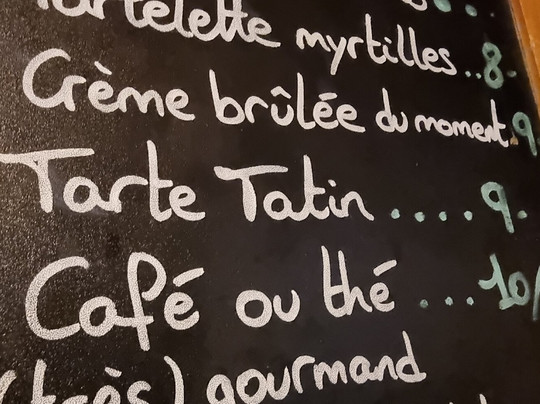 Tartelette myrtilles..8.
Crème brûlée du moment.9
Tarte Tatin ....9.
Café ou thé ...10/
(très) gourmand